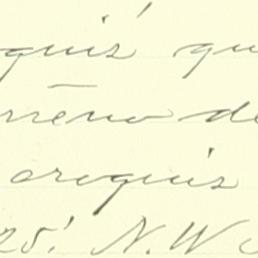 oquis' qu
rreno de
croquis
25' N.W.